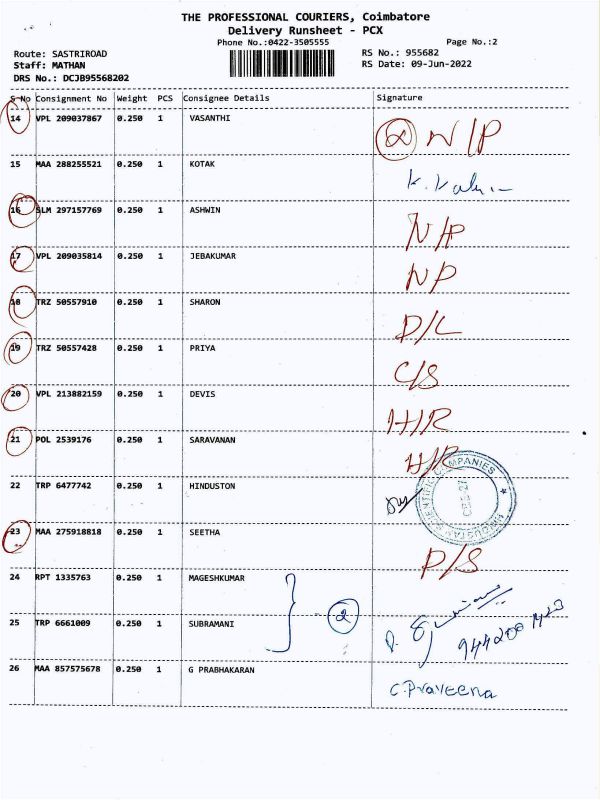 THE PROFESSIONAL COURIERS, Coimbatore
Delivery Runsheet - PCX
Phone No.:0422-3505555 Page No.:2
Route: SASTRIROAD RS No.: 955682
Staff: MATHAN RS Date: 09-Jun-2022
DRS No.: DCJB95568202
S No Consignment No Weight PCS Consignee Details Signature
14 VPL 209037867 0.250 1 VASANTHI 2 N/P
15 MAA 288255521 0.250 1 KOTAK
16 SLM 297157769 0.250 1 ASHWIN N/P
17 VPL 209035814 0.250 1 JEBAKUMAR NP
18 TRZ 50557910 0.250 1 SHARON D/L
19 TRZ 50557428 0.250 1 PRIYA C/S
20 VPL 213882159 0.250 1 DEVIS H/R
21 POL 2539176 0.250 1 SARAVANAN H/R
22 TRP 6477742 0.250 1 HINDUSTON
HINDUSTAN SCIENTIFIC COMPANIES
CBE-27
23 MAA 275918818 0.250 1 SEETHA P/S
24 RPT 1335763 0.250 1 MAGESHKUMAR
25 TRP 6661009 0.250 1 SUBRAMANI 2
26 MAA 857575678 0.250 1 G PRABHAKARAN C.Praveena